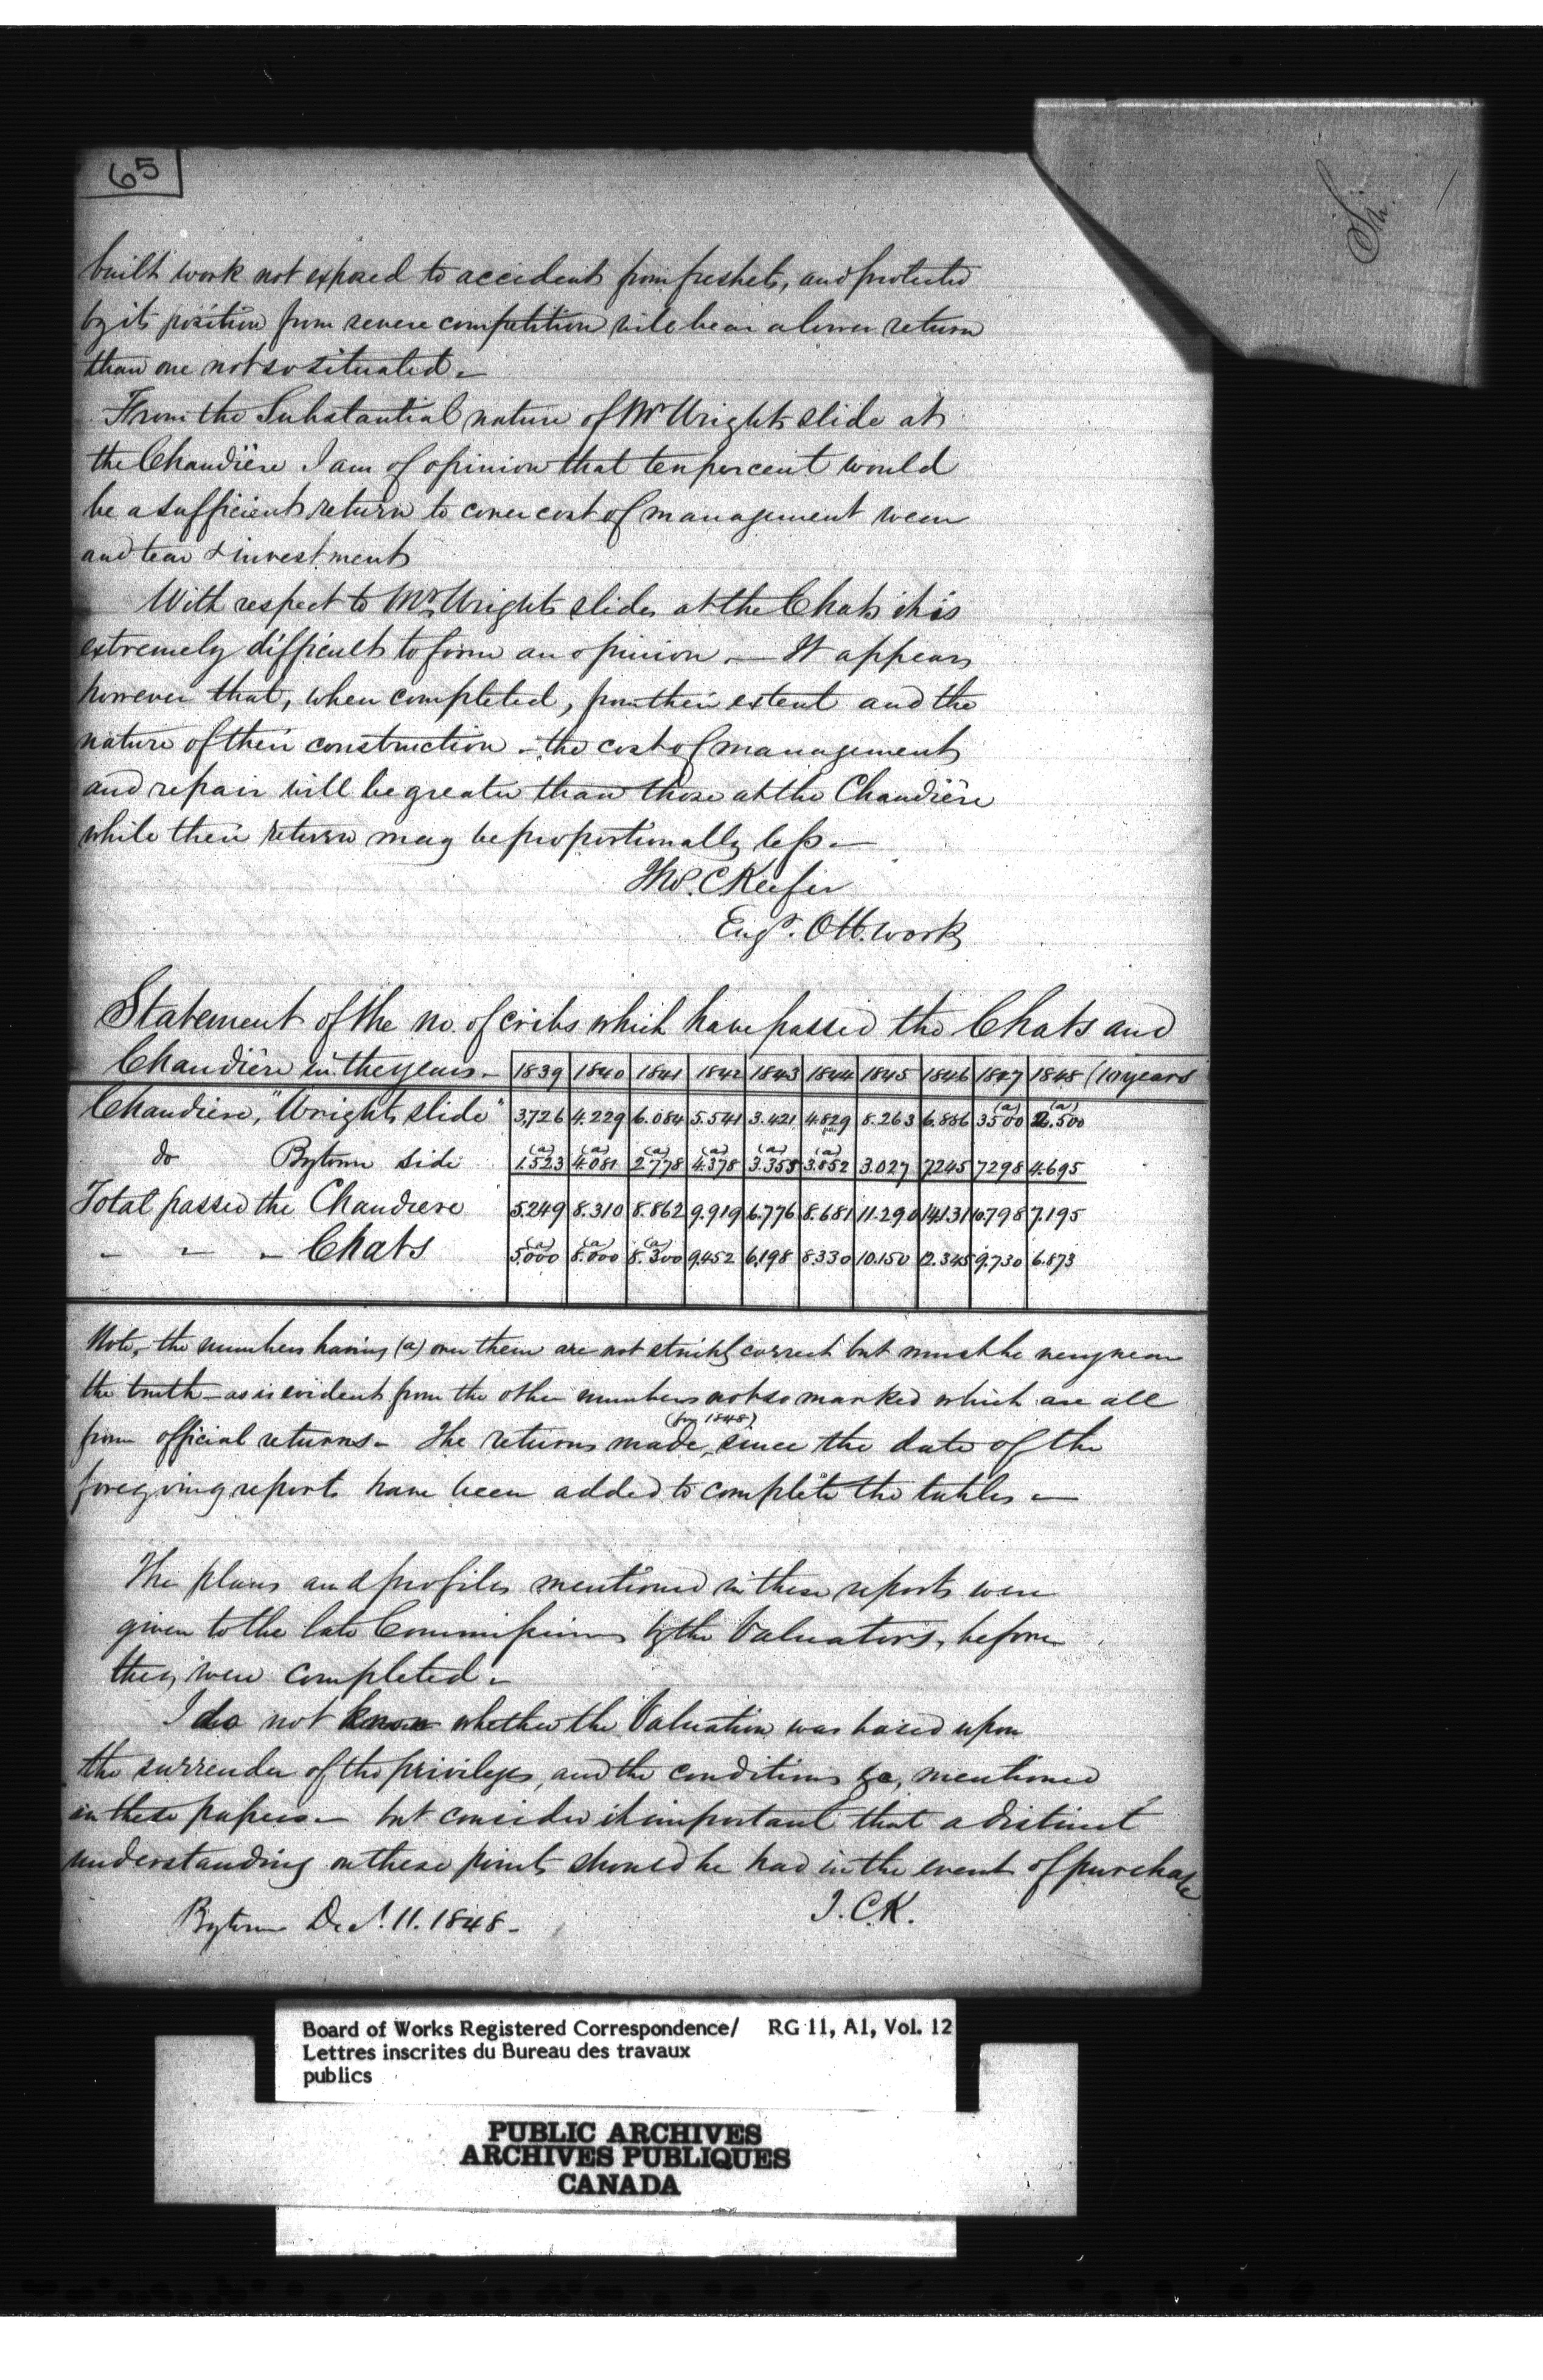 65
Sir.
built work not exposed to accident from freshets, and protected
by its position from severe competition will bear a lower return
than one not so situated. —
From the Substantial nature of Mr Wrights slide at
the Chaudière I am of opinion that ten per cent would
be a sufficient return to cover cost of management wear
and tear & investment
With respect to Mr. Wrights slides at the Chats it is
extremely difficult to form an opinion. — It appears
however that, when completed, from their extent and the
nature of their construction - the cost of management
and repair will be greater than those at the Chaudière
while their return may be proportionally less. —
Thos. C Keefer
Engr. Ott. works
Statement of the no. of cribs which have passed the Chats and
Chaudière in the years - 1839 1840 1841 1842 1843 1844 1845 1846 1847 1848 (10 years
Chaudiere, "Wrights slide" 3,726 4.229 6.084 5.541 3.421 4.829 8.263 6.886 (a) 3500 (a) 2.500
do Bytown side (a) 1.523 (a) 4.081 (a) 2.778 (a) 4.378 (a) 3.355 (a) 3.852 3.027 7245 7298 4.695
Total passed the Chaudiere 5.249 8.310 8.862 9.919 6.776 8.681 11.290 14.131 10.798 7.195
- - - Chats (a) 5,000 (a) 8.000 (a) 8.300 9.452 6,198 8.330 10.150 12.345 9.730 6.873
Note, - the numbers having (a) over them are not strictly correct but must be very near
the truth - as is evident from the other numbers not so marked which are all
from official returns - The returns made (for 1848) since the date of the
foregoing reports have been added to complete the tables. —
The plans and profiles mentioned in these reports were
given to the late Commissioners by the Valuators, before
they were completed. -
I do not know whether the Valuation was based upon
the surrender of the privileges, and the conditions &c, mentioned
in these papers - but consider it important that a distinct
understanding on these points should be had in the event of purchase
Bytown Dec. 11. 1848 - T.C.K.
Board of Works Registered Correspondence/ RG 11, A1, Vol. 12
Lettres inscrites du Bureau des travaux
publics
PUBLIC ARCHIVES
ARCHIVES PUBLIQUES
CANADA